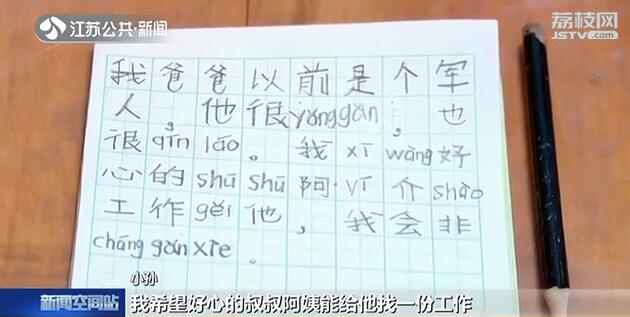 江苏公共·新闻
荔枝网
JSTV.com
我爸爸以前是个军
人，他很yǒnggǎn，也
很qín láo。我xī wàng好
心的shū shu阿yí介shào
工作gěi他，我会非
cháng gǎn xiè。
小孙
新闻空间站
我希望好心的叔叔阿姨能给他找一份工作